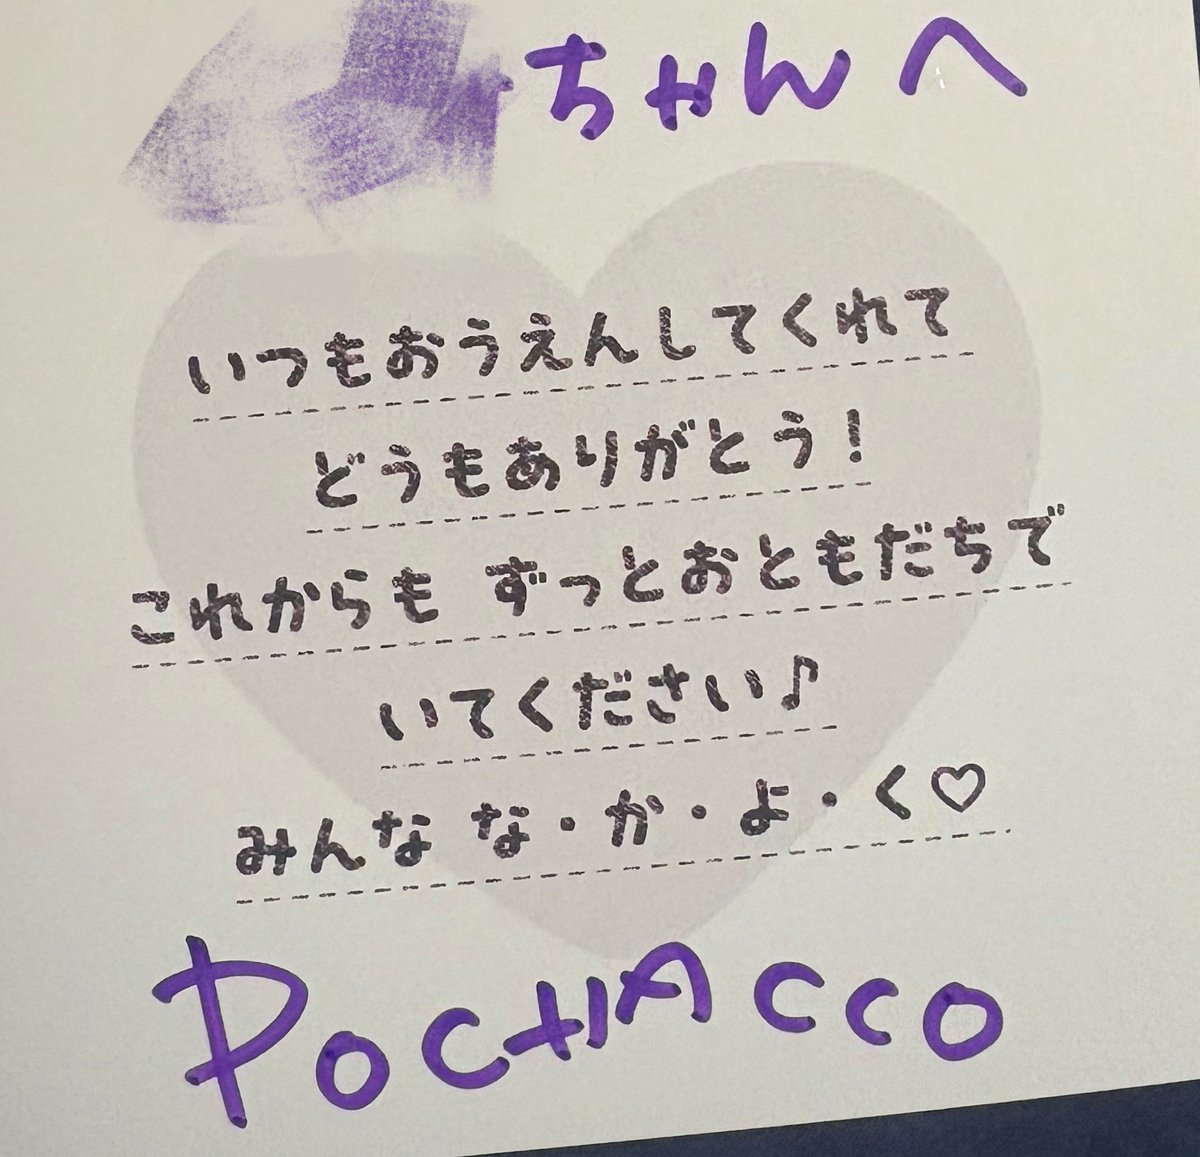 ちゃんへ
いつもおうえんしてくれて
どうもありがとう!
これからも ずっとおともだちで
いてください♪
みんな な・か・よ・く♡
POCHACCO